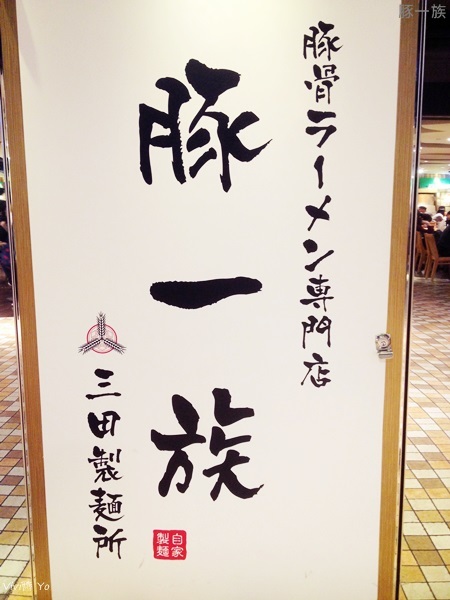 豚骨ラーメン専門店
豚一族
三田製麺所
自家
製麺
豚一族